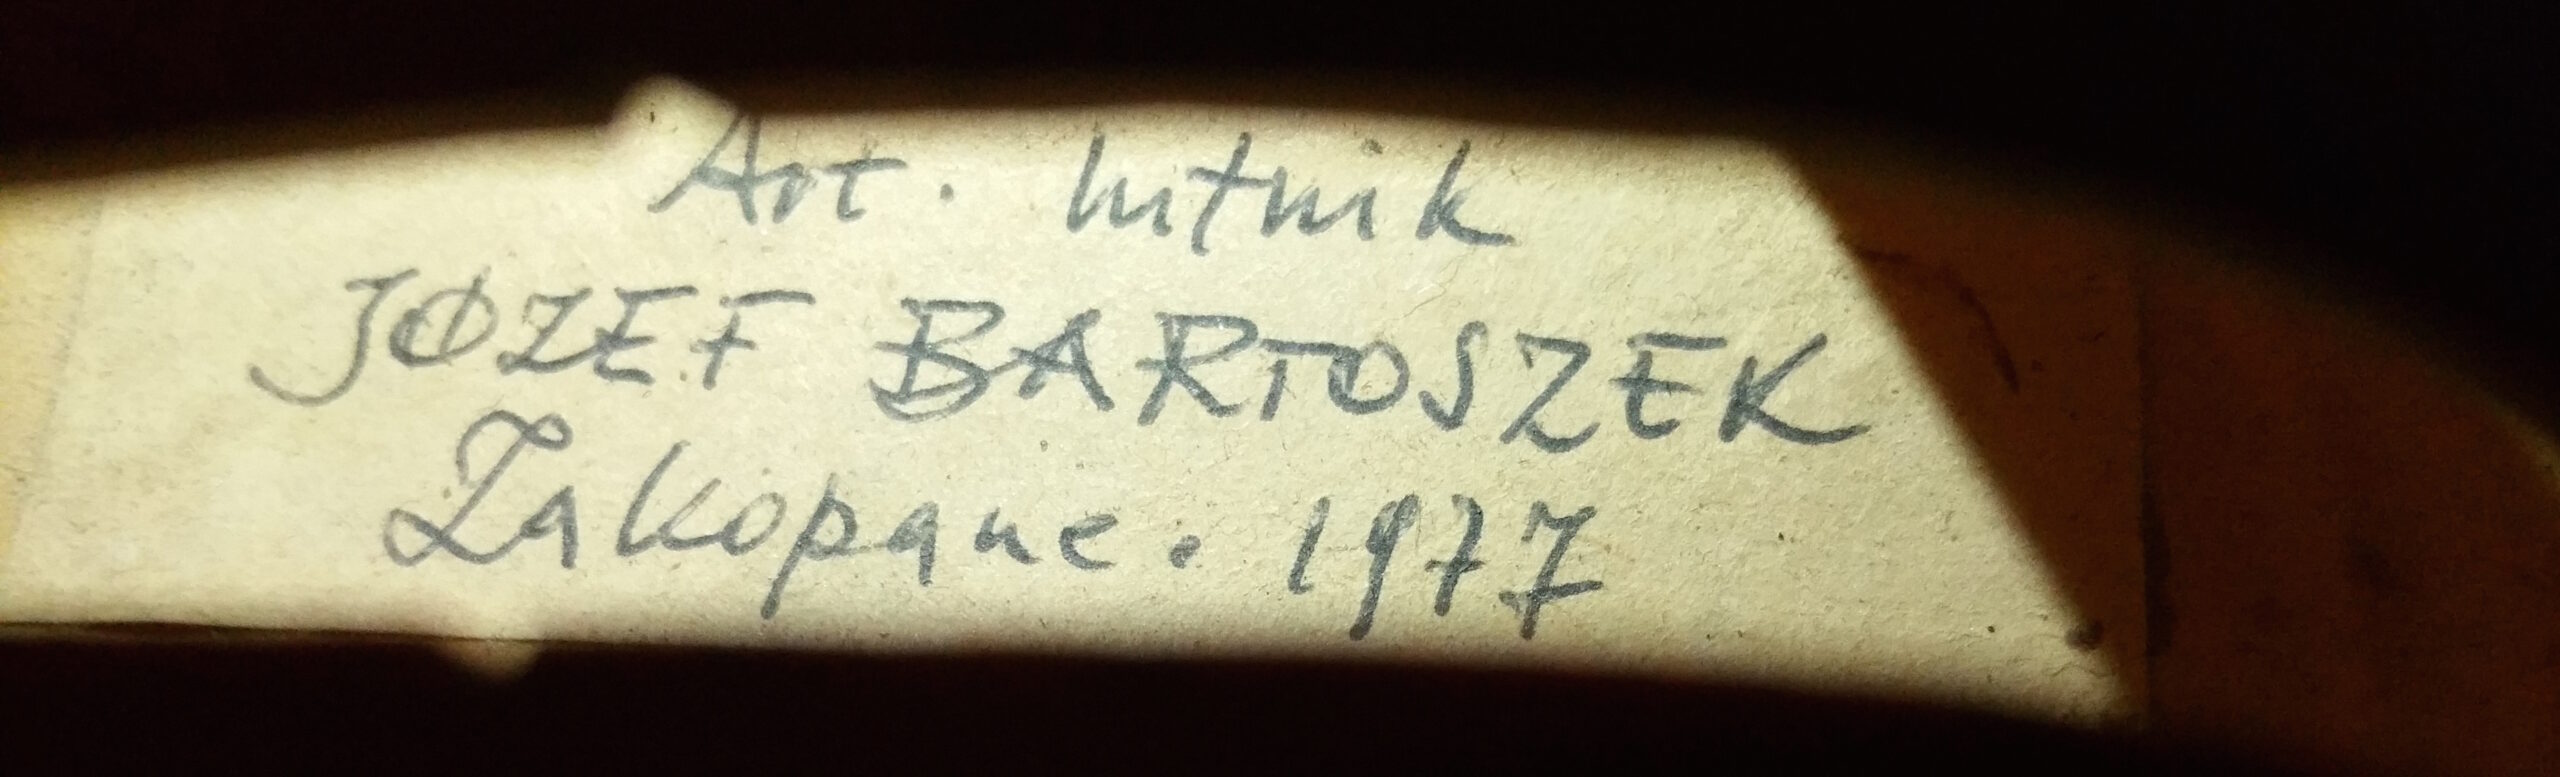 Art. lutnik
JÓZEF BARTOSZEK
Zakopane. 1977